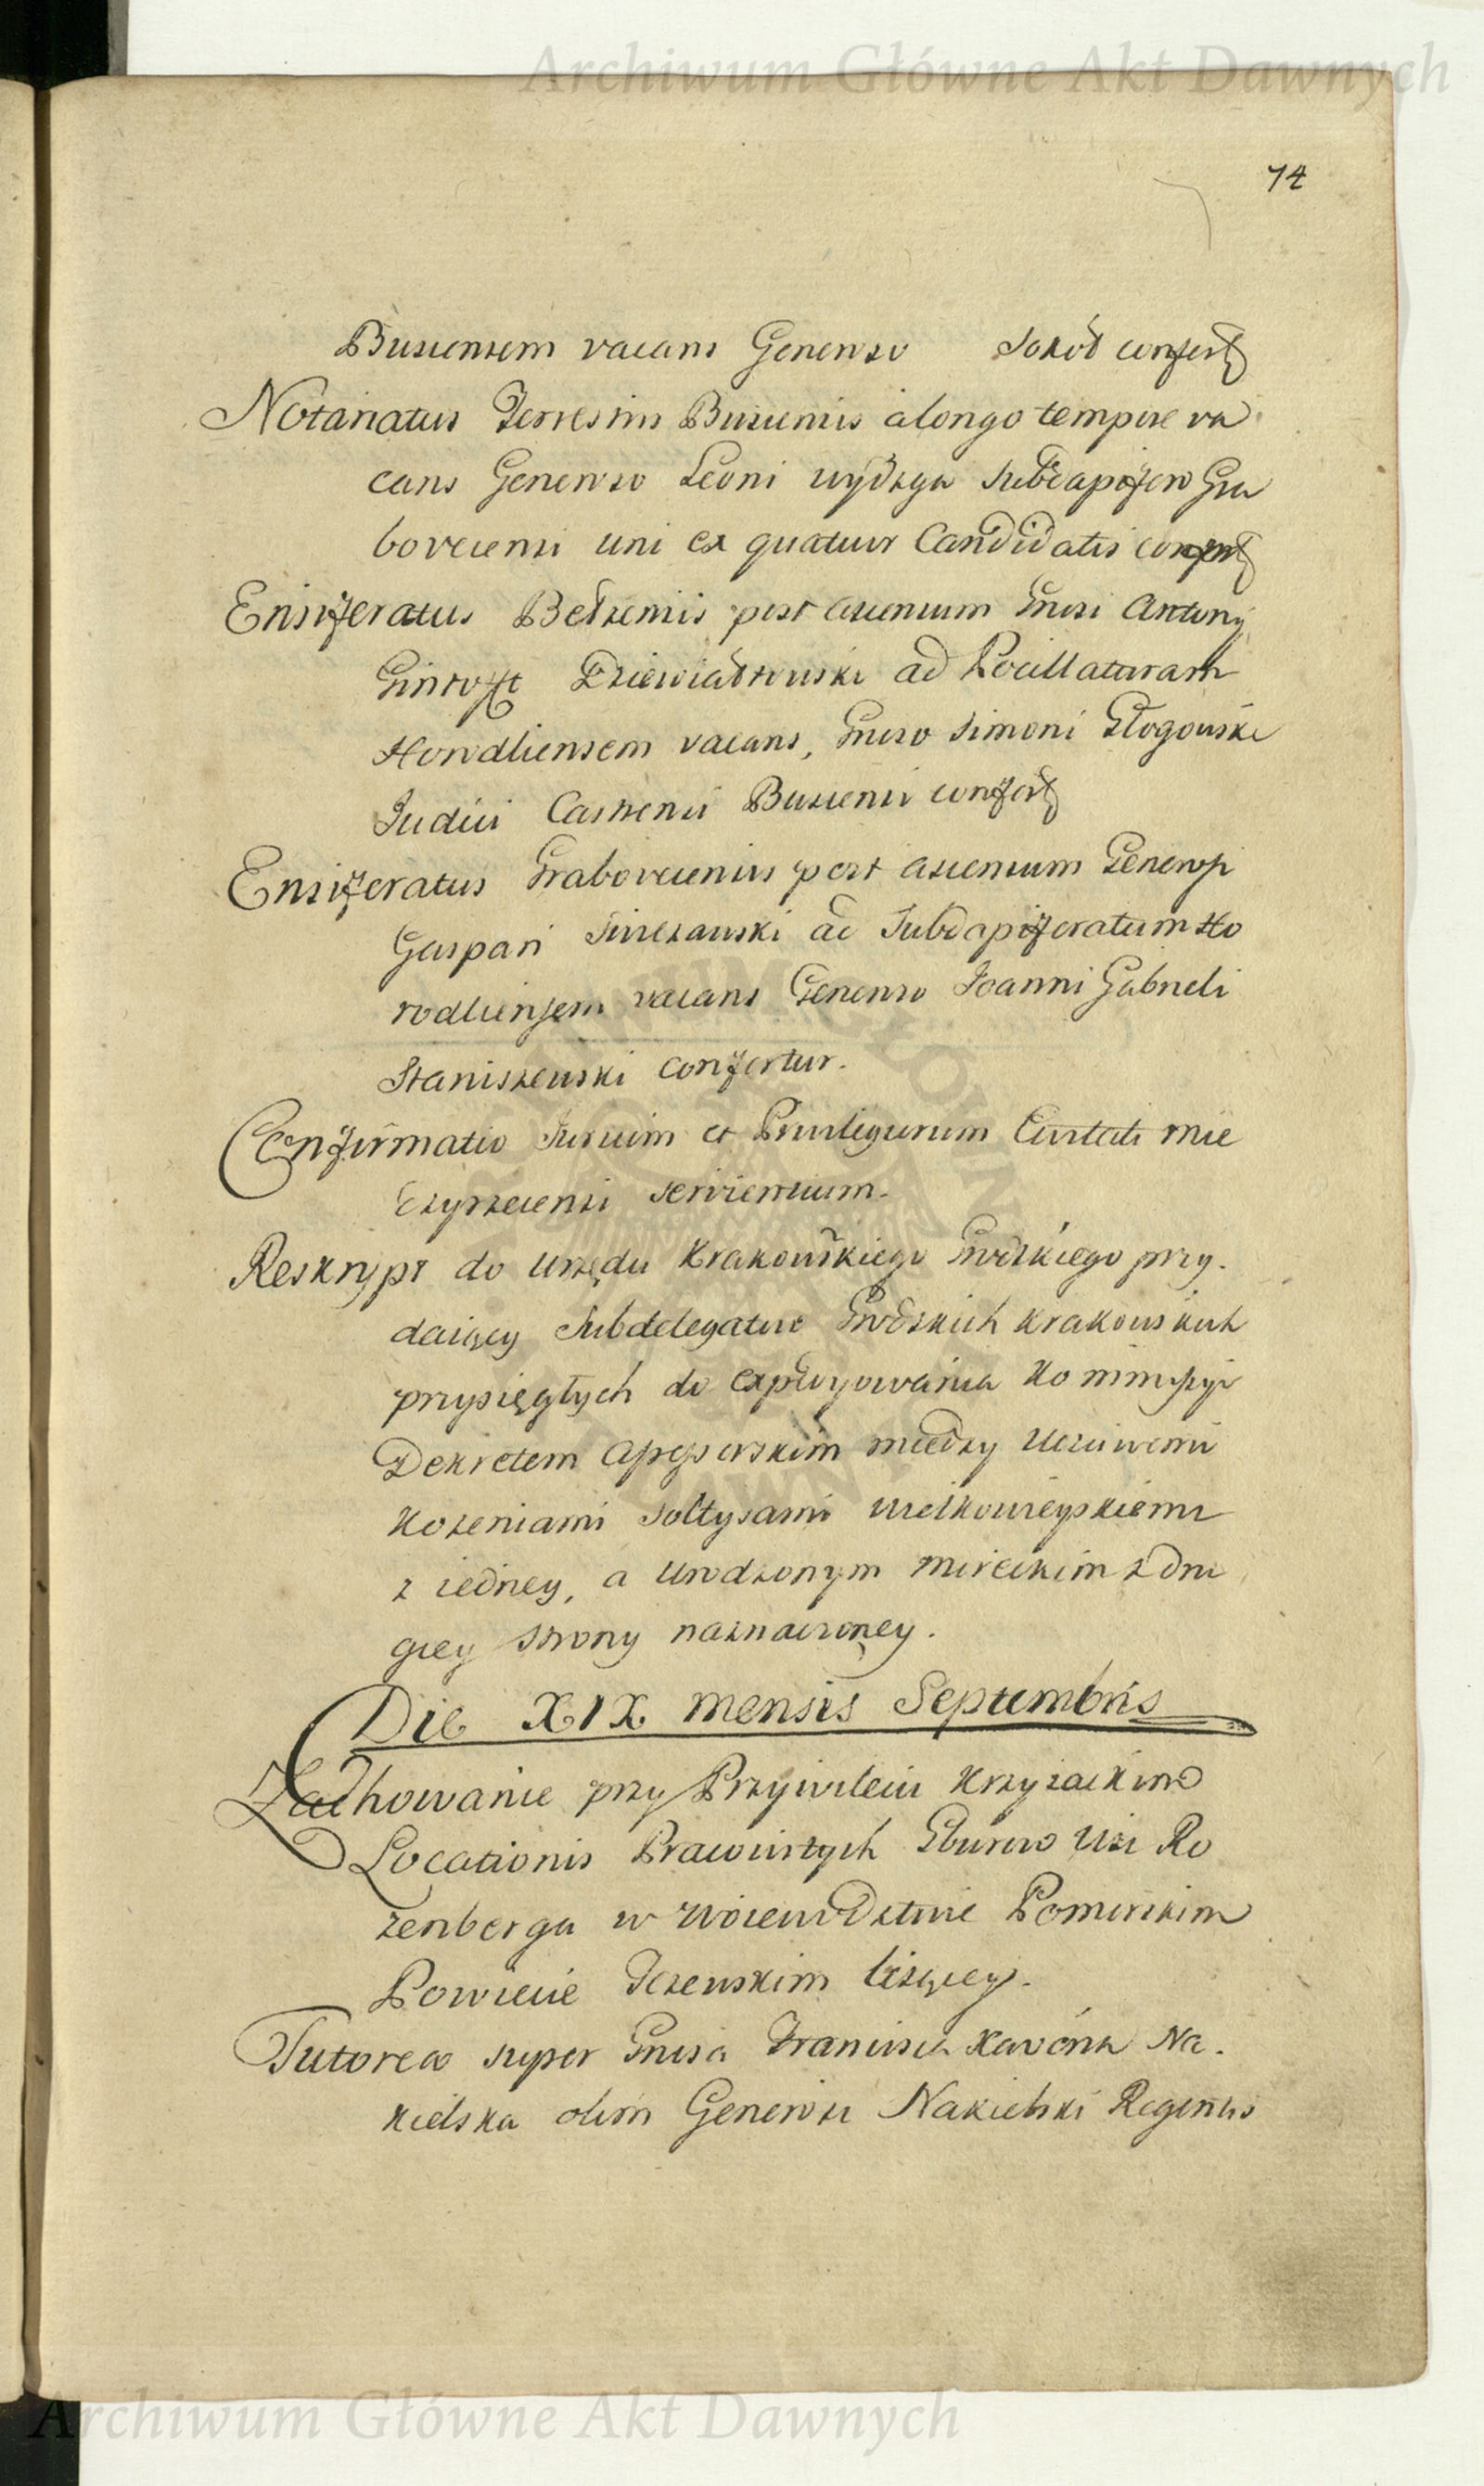 Archiwum Główne Akt Dawnych
74
Buscensem vacans Generoso Sokoł confert
Notariatus Terrestris Buscensis a longo tempore va
cans Generoso Leoni Wydzga Subdapifero Gra
bovecensi uni ex quatuor Candidatis confert
Ensiferatus Bełzensis post ascensum Gnrsi Antonÿ
Gintoft Dziewiałtowski ad Pocillaturam
Horodliensem vacans, Gnrso Simoni Głogowski
Judici Castrensi Buscensi confert
Ensiferatus Grabovecensis post ascensum Generosi
Gaspari Swiezawski ad Subdapiferatum Ho
rodliensem vacans Generoso Joanni Gabrieli
Staniszewski confertur.
Confirmatio Jurium et Privilegiorum Civitati Mie
dzyrzecensi servientium.
Reskrypt do Urzędu Krakowskiego Grodzkiego przy-
daiący Subdelegatow Grodzkich Krakowskich
przysięgłych do expedyowania Kommissyi
Dekretem Assessorskim między Uczciwemi
Kozeniami Sołtysami Wielkowieyskiemi
z iedney, a Urodzonym Mireckim z dru
giey strony naznaczoney.
Die XIX mensis Septembris
Zachowanie przy Przywileiu Krzyżackim
Locationis Pracowitych Gburow Wsi Ro
zenberga w Woiewodztwie Pomorskim
Powiecie Tczewskim leżącey.
Tutorea super Gnrsa Francisca Xaveria Na-
kielska olim Generosi Nakielski Regentis
Archiwum Główne Akt Dawnych